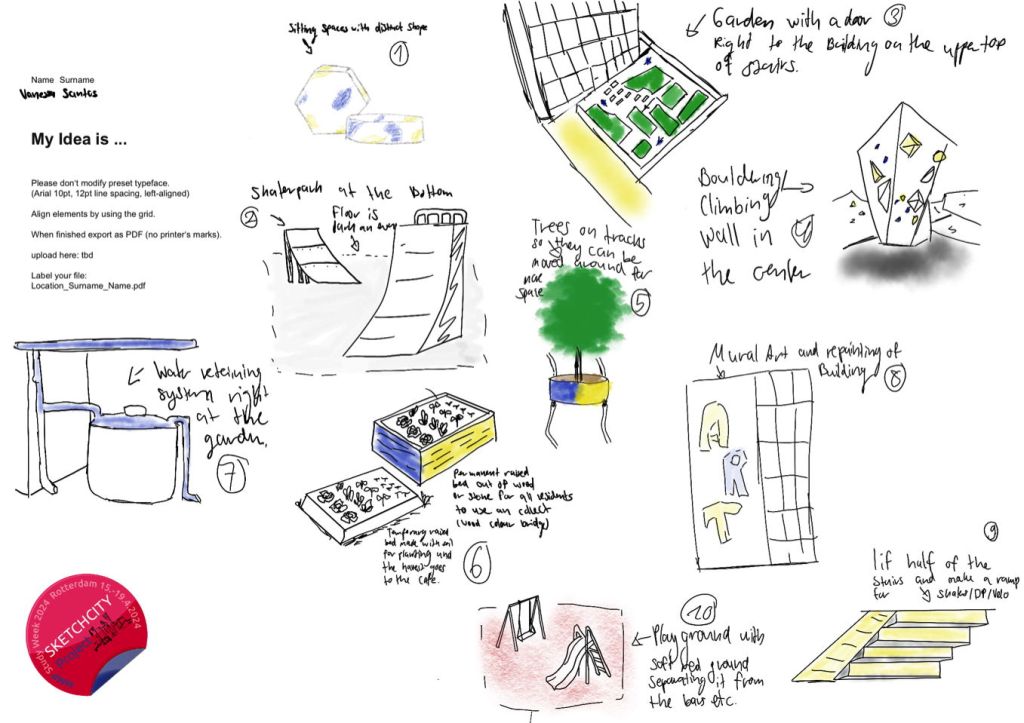 Name Surname
Vanessa Santos
My Idea is ...
Please don't modify preset typeface.
(Arial 10pt, 12pt line spacing, left-aligned)
Align elements by using the grid.
When finished export as PDF (no printer's marks).
upload here: tbd
Label your file:
Location_Surname_Name.pdf
Sitting spaces with distinct shape
1
Skaterpark at the Bottom
2
Floor is
Garden with a door 3
Right to the Building on the upper top
of stairs.
Bouldering/
Climbing
Wall in 4
the center
Trees on tracks
so they can be
moved around for
more
space
5
Water reteining
system right
at the
garden.
7
Permanent raised
bed out of wood
or stone for all residents
to use an collect
(wood colour bridge)
Temporary raised
bed made with soil
for planting and
the harvest goes
to the cafe.
6
Mural Art and repainting of
Building 8
9
lif half of the
stairs and make a ramp
for skater/DP/Velo
10
Playground with
soft red ground
separating it from
the bars etc.
Study Week 2024 Rotterdam 15.-19.4.2024
SKETCHCITY
Project